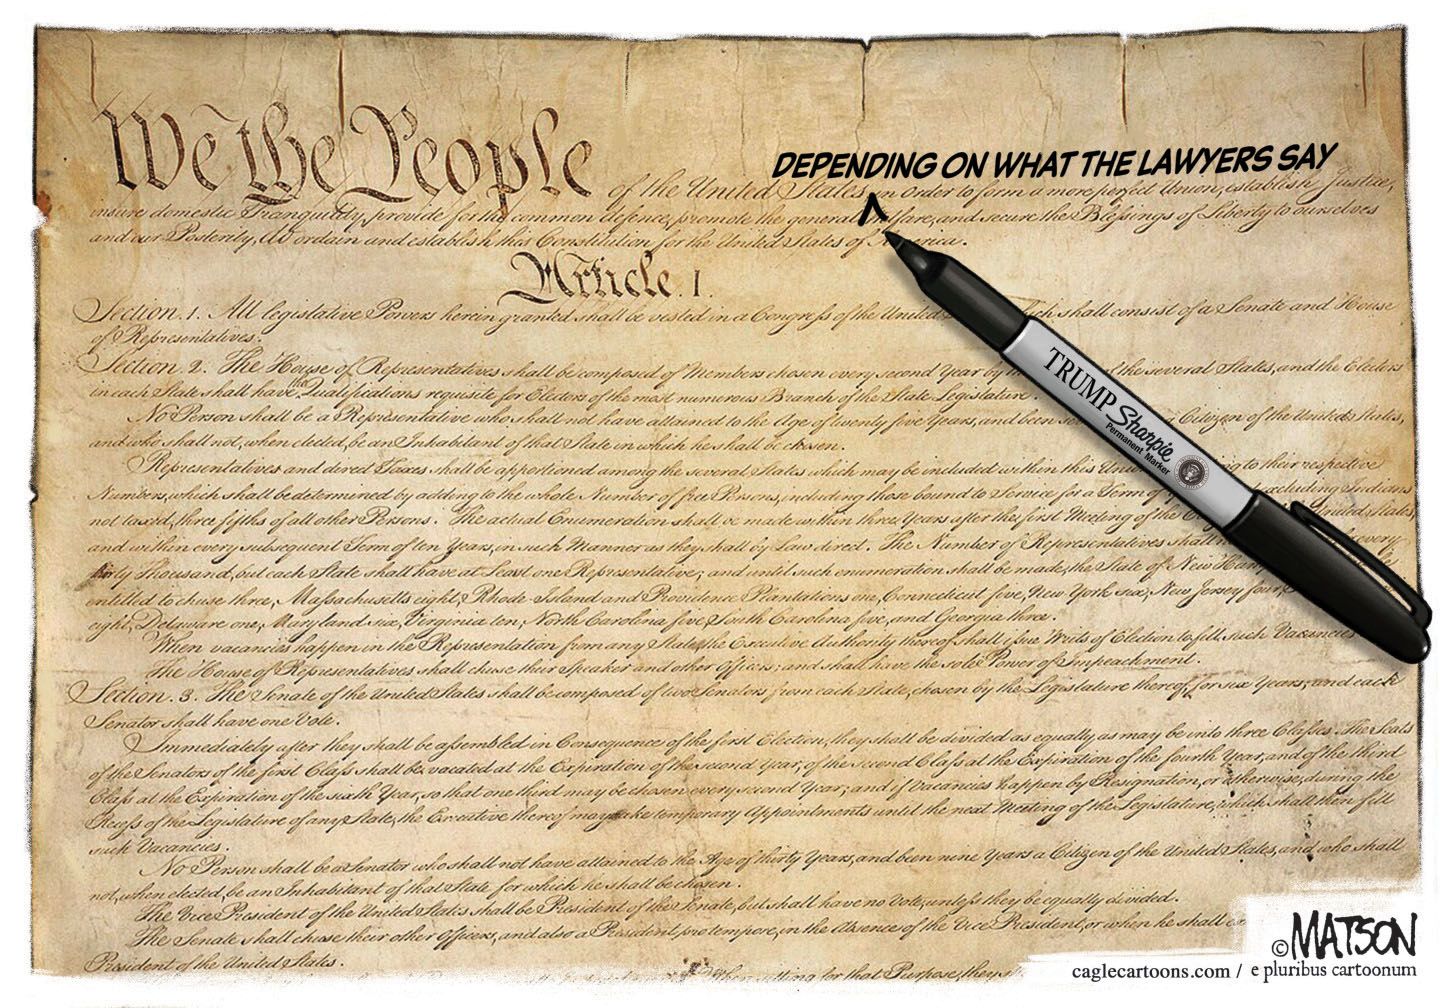 DEPENDING ON WHAT THE LAWYERS SAY
We the People of the United States, in Order to form a more perfect Union, establish Justice,
insure domestic Tranquility, provide for the common defence, promote the general Welfare, and secure the Blessings of Liberty to ourselves
and our Posterity, do ordain and establish this Constitution for the United States of America.
Article. I.
Section. 1. All legislative Powers herein granted shall be vested in a Congress of the United which shall consist of a Senate and House
of Representatives.
Section. 2. The House of Representatives shall be composed of Members chosen every second Year by of the several States, and the Electors
in each State shall have the Qualifications requisite for Electors of the most numerous Branch of the State Legislature.
No Person shall be a Representative who shall not have attained to the Age of twenty five Years, and been Citizen of the United States,
and who shall not, when elected, be an Inhabitant of that State in which he shall be chosen.
Representatives and direct Taxes shall be apportioned among the several States which may be included within this to their respective
Numbers, which shall be determined by adding to the whole Number of free Persons, including those bound to Service for a Term of excluding Indians
not taxed, three fifths of all other Persons. The actual Enumeration shall be made within three Years after the first Meeting of the United States,
and within every subsequent Term of ten Years, in such Manner as they shall by Law direct. The Number of Representatives shall every
thirty Thousand, but each State shall have at Least one Representative; and until such enumeration shall be made, the State of New
entitled to chuse three, Massachusetts eight, Rhode Island and Providence Plantations one, Connecticut five, New York six, New Jersey four,
eight, Delaware one, Maryland six, Virginia ten, North Carolina five, South Carolina five, and Georgia three.
When vacancies happen in the Representation from any State, the Executive Authority thereof shall issue Writs of Election to fill such Vacancies
The House of Representatives shall chuse their Speaker and other Officers; and shall have the sole Power of Impeachment.
Section. 3. The Senate of the United States shall be composed of two Senators from each State, chosen by the Legislature thereof, for six Years; and each
Senator shall have one Vote.
Immediately after they shall be assembled in Consequence of the first Election, they shall be divided as equally as may be into three Classes. The Seats
of the Senators of the first Class shall be vacated at the Expiration of the second Year, of the second Class at the Expiration of the fourth Year, and of the third
Class at the Expiration of the sixth Year, so that one third may be chosen every second Year; and if Vacancies happen by Resignation, or otherwise, during the
Recess of the Legislature of any State, the Executive thereof may make temporary Appointments until the next Meeting of the Legislature, which shall then fill
such Vacancies.
No Person shall be a Senator who shall not have attained to the Age of thirty Years, and been nine Years a Citizen of the United States, and who shall
not, when elected, be an Inhabitant of that State for which he shall be chosen.
The Vice President of the United States shall be President of the Senate, but shall have no Vote, unless they be equally divided.
The Senate shall chuse their other Officers, and also a President pro tempore, in the Absence of the Vice President, or when he shall
President of the United States.
when sitting for that Purpose, they
TRUMP Sharpie
Permanent Marker
© MATSON
caglecartoons.com / e pluribus cartoonum